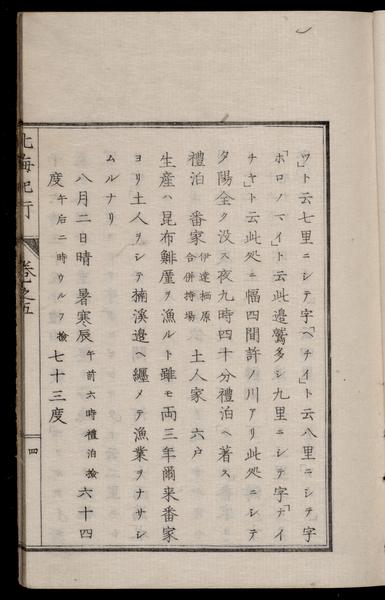 ウト云七里ニシテ字「ヘチイ」ト云八里ニシテ字
「ホロノマイ」ト云此邊鷲多シ九里ニシテ字「ナイ
チヤ」ト云此処ニ幅四間許ノ川アリ此処ニシテ
夕陽全ク没ス夜九時四十分禮泊ヘ著ス
禮泊 番家 伊達栖原合併持場 土人家 六戸
生産ハ昆布鯡厚ヲ漁ルト雖モ両三年爾来番家
ヨリ土人ヲシテ楠溪邉ヘ纒メテ漁業ヲナサシ
ムルナリ
八月二日晴 暑寒辰 午前六時禮泊檢 六十四
度 午后二時ウルフ檢 七十三度
北海紀行 巻之五 四